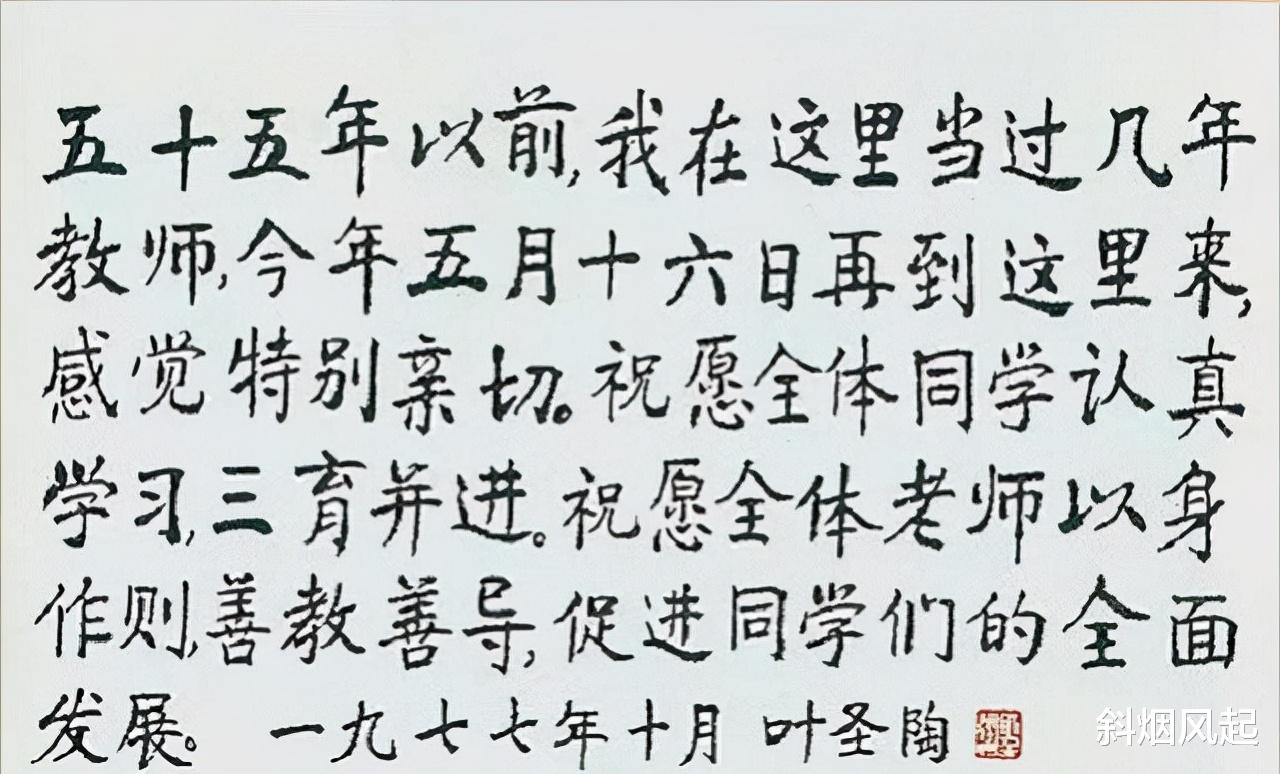 五十五年以前,我在这里当过几年
教师,今年五月十六日再到这里来,
感觉特别亲切。祝愿全体同学认真
学习,三育并进。祝愿全体老师以身
作则,善教善导,促进同学们的全面
发展。 一九七七年十月 叶圣陶
斜烟风起